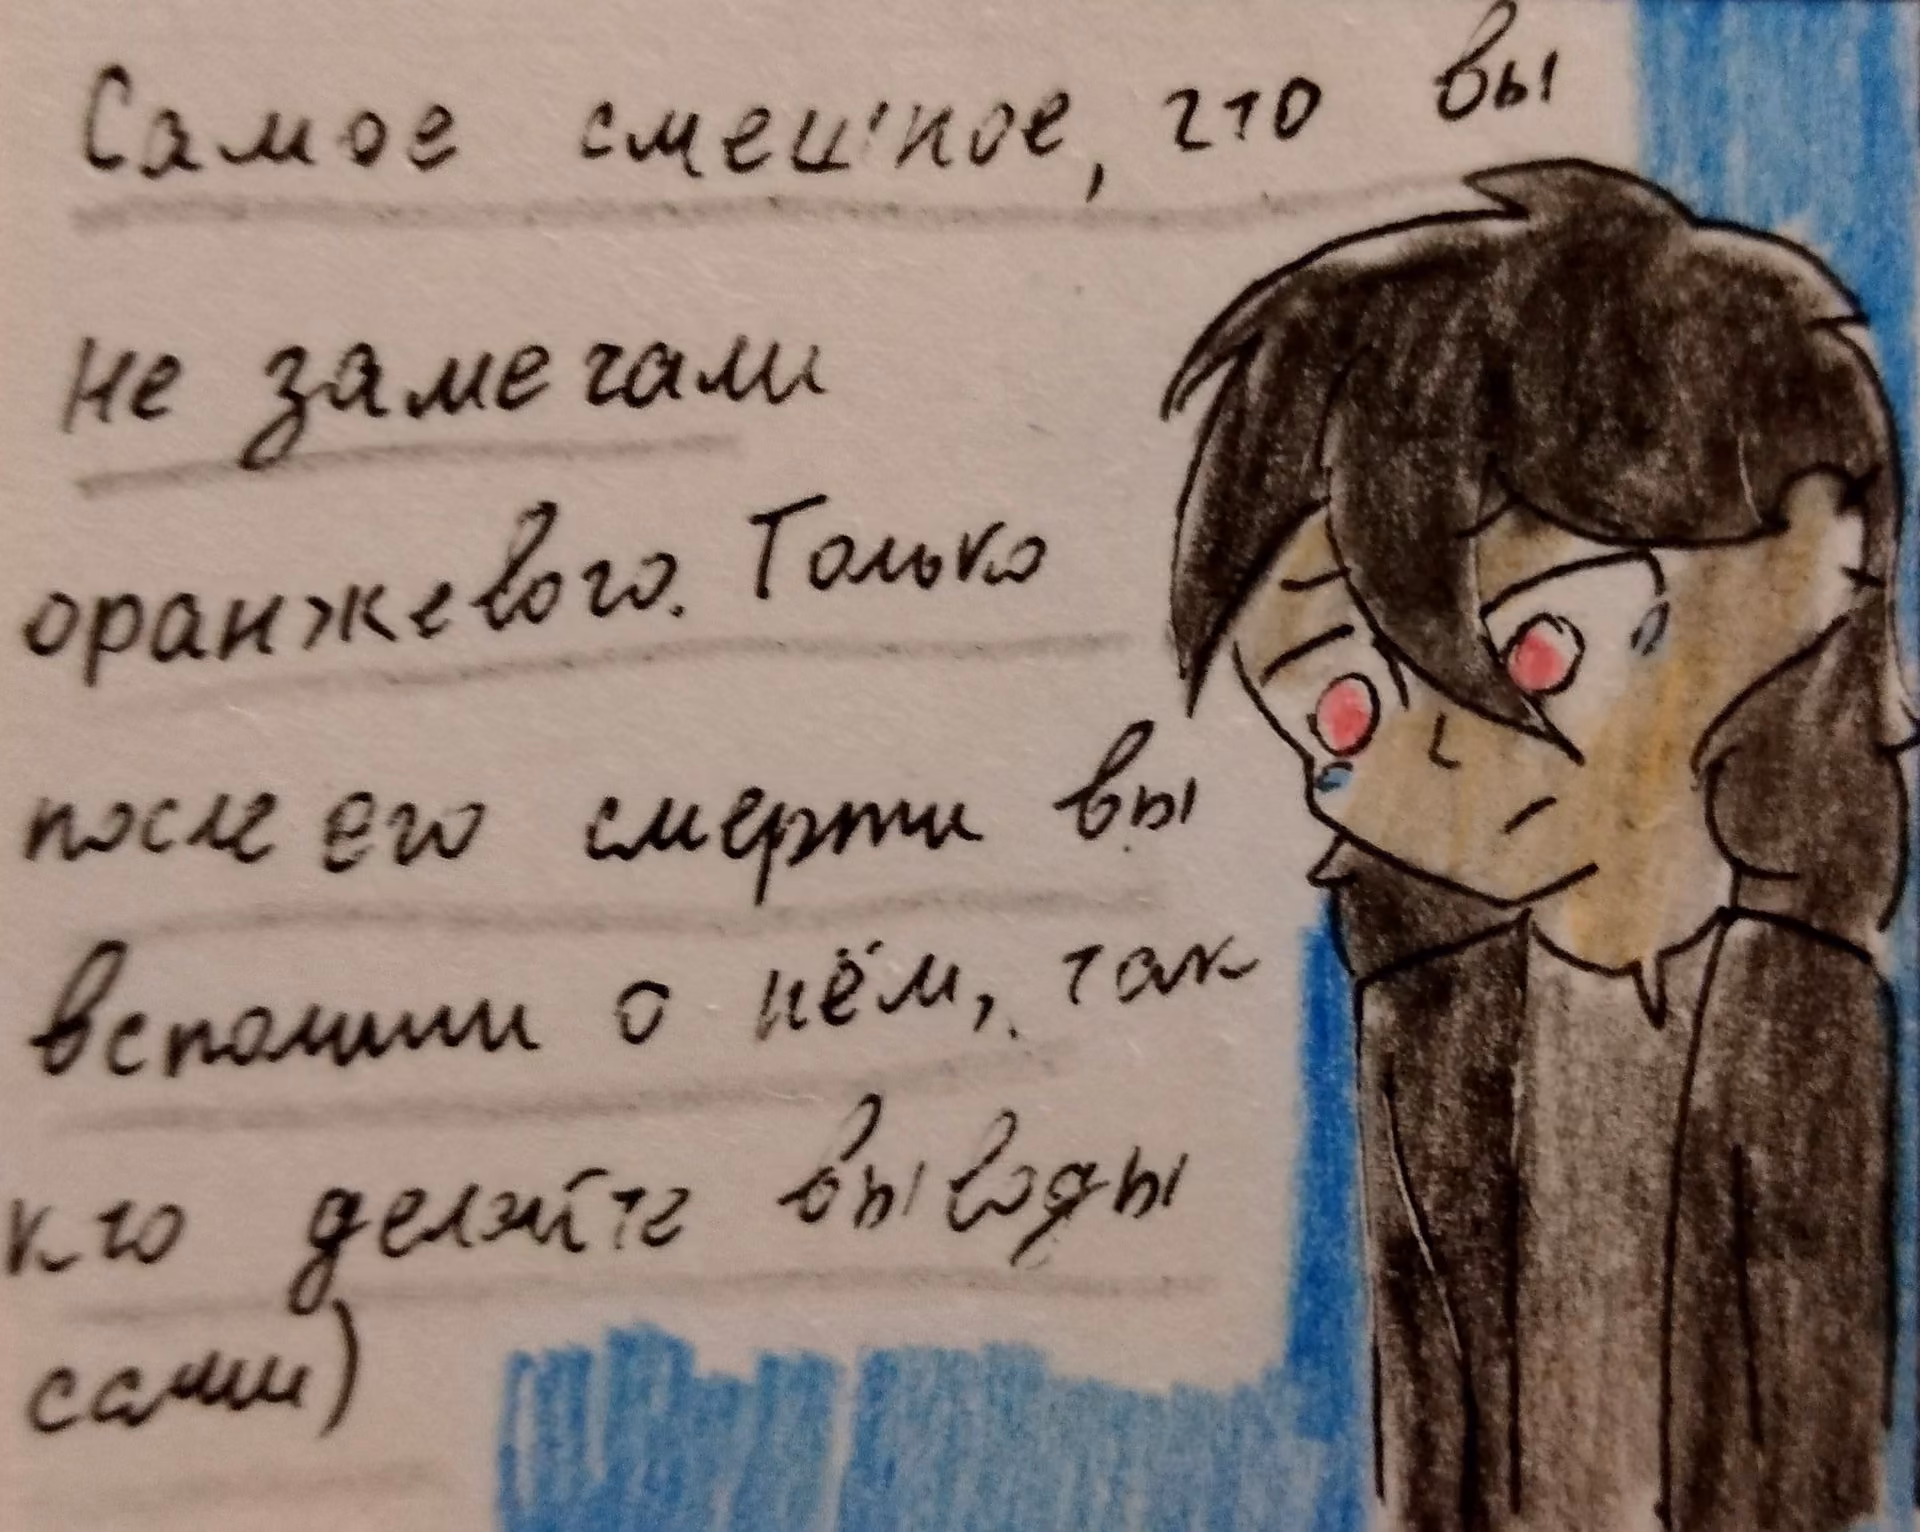 Самое смешное, что вы
не замечали
оранжевого. Только
после его смерти вы
вспомнили о нём, так
кто делайте выводы
сами)